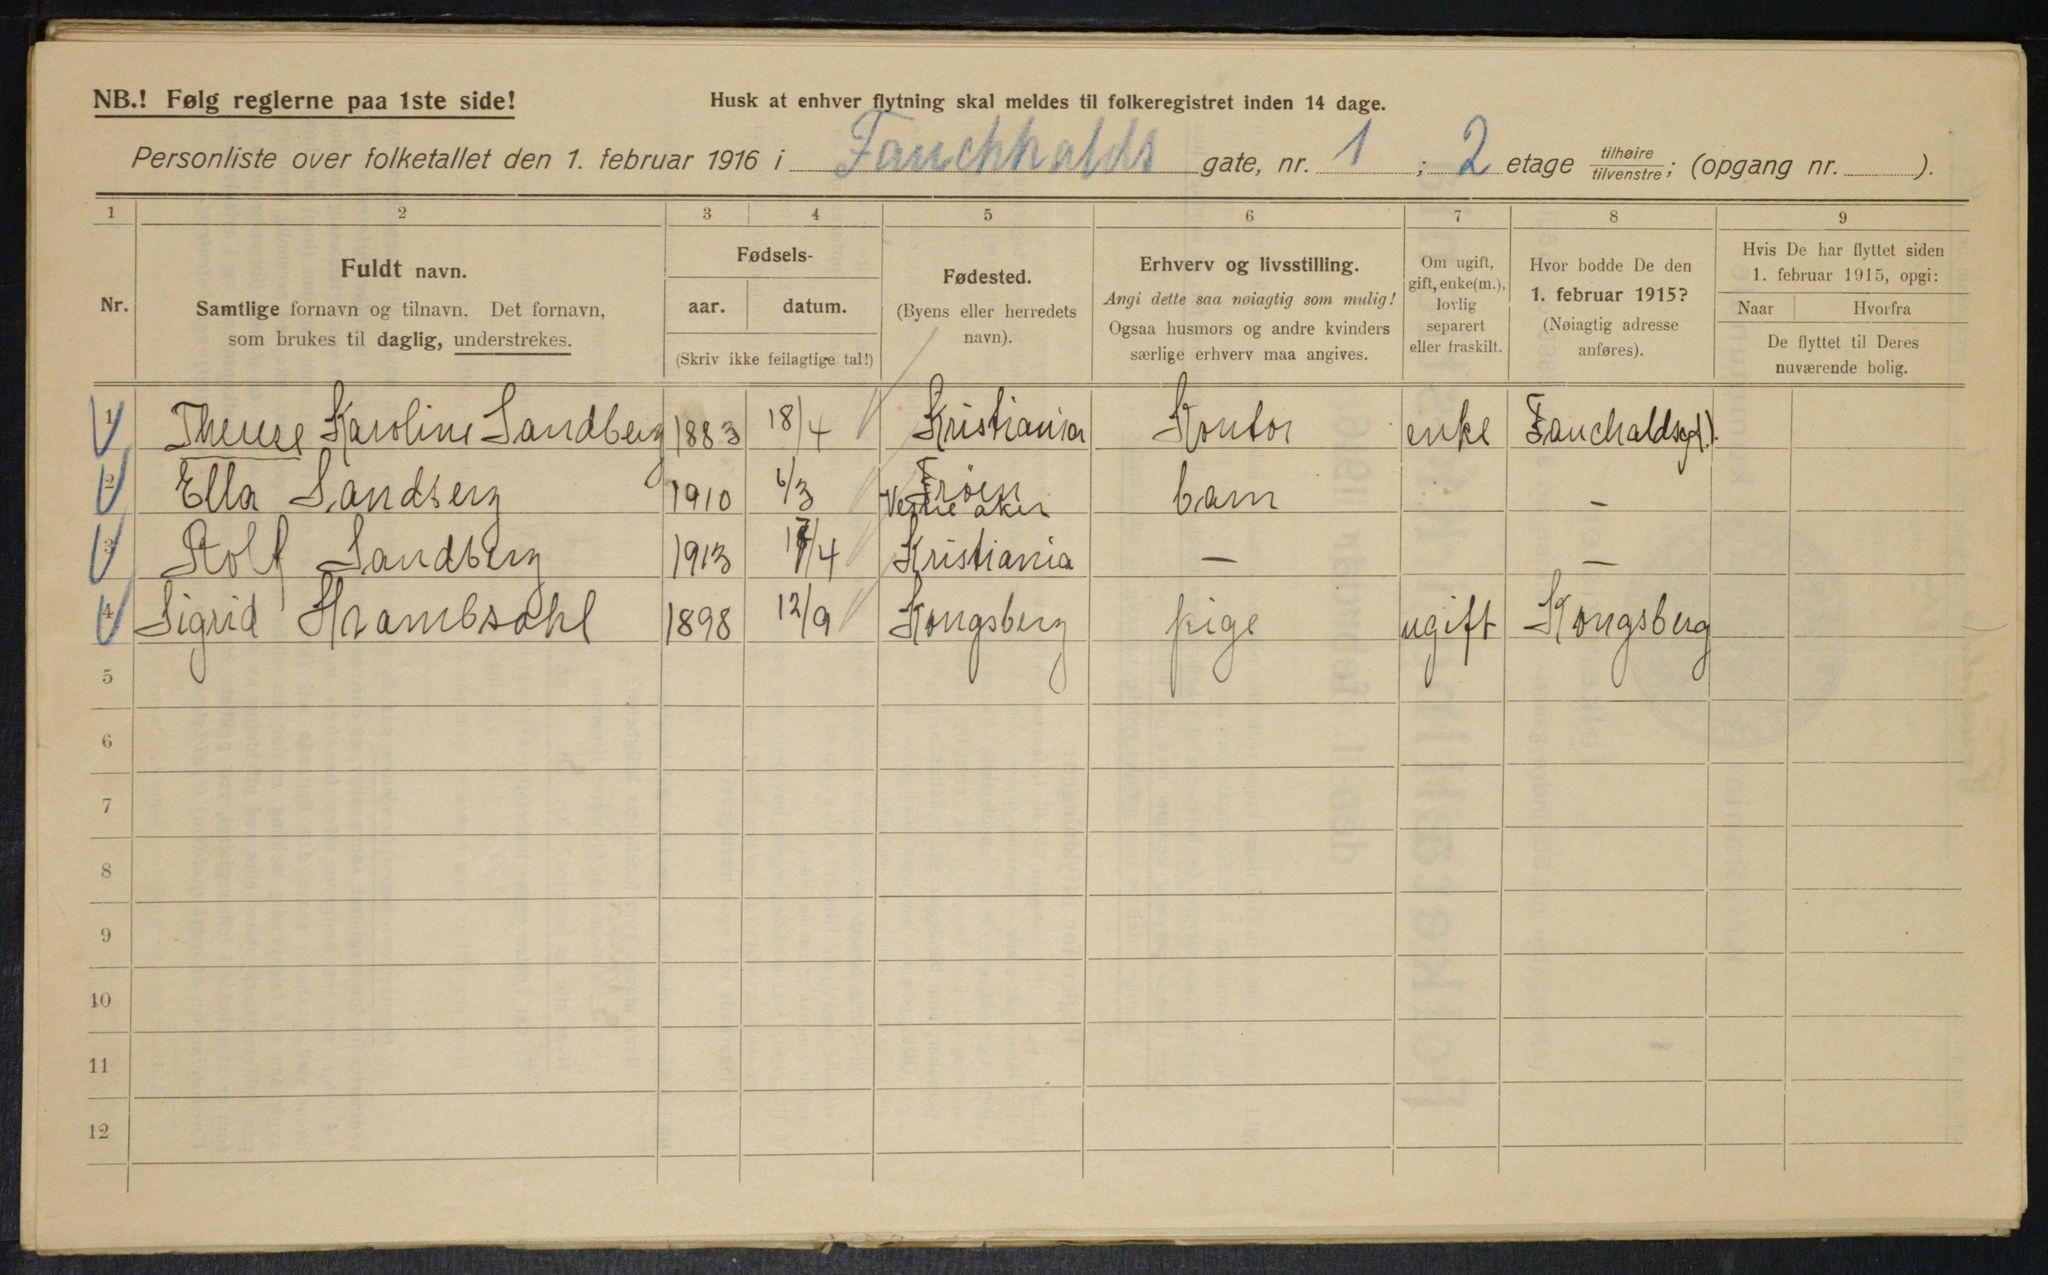 NB.! Følg reglerne paa 1ste side!
Husk at enhver flytning skal meldes til folkeregistret inden 14 dage.
Personliste over folketallet den 1. februar 1916 i Fauchhalds gate, nr. 1 ; 2 etage tilhøire/tilvenstre; (opgang nr. ).
1 2 3 4 5 6 7 8 9
Nr.
Fuldt navn.
Samtlige fornavn og tilnavn. Det fornavn,
som brukes til daglig, understrekes.
Fødsels-
aar. datum.
(Skriv ikke feilagtige tal!)
Fødested.
(Byens eller herredets
navn).
Erhverv og livsstilling.
Angi dette saa nøiagtig som mulig!
Ogsaa husmors og andre kvinders
særlige erhverv maa angives.
Om ugift,
gift, enke(m.),
lovlig
separert
eller fraskilt.
Hvor bodde De den
1. februar 1915?
(Nøiagtig adresse
anføres).
Hvis De har flyttet siden
1. februar 1915, opgi:
Naar Hvorfra
De flyttet til Deres
nuværende bolig.
1 Therese Karoline Sandberg 1883 18/4 Kristiania Kontor enke Fauchaldsgt. 1.
2 Ella Sandberg 1910 6/3 Frøen Vestre aker barn –
3 Rolf Sandberg 1913 17/4 Kristiania – –
4 Sigrid Krambsdhl 1898 12/9 Kongsberg pige ugift Kongsberg
5
6
7
8
9
10
11
12